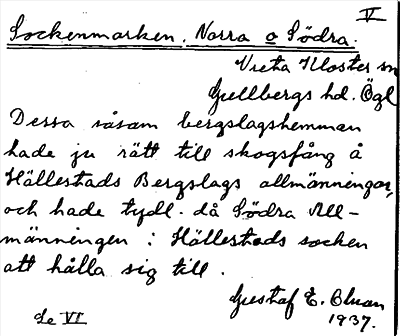 V
Sockenmarken. Norra o Södra.
Vreta Kloster sn
Gullbergs hd. Ögl
Dessa såsom bergslagshemman
hade ju rätt till skogsfång å
Hällestads Bergslags allmänningar,
och hade tydl. då Södra All-
männingen i Hällestads socken
att hålla sig till.
Gustaf E.
1937.
Se VI